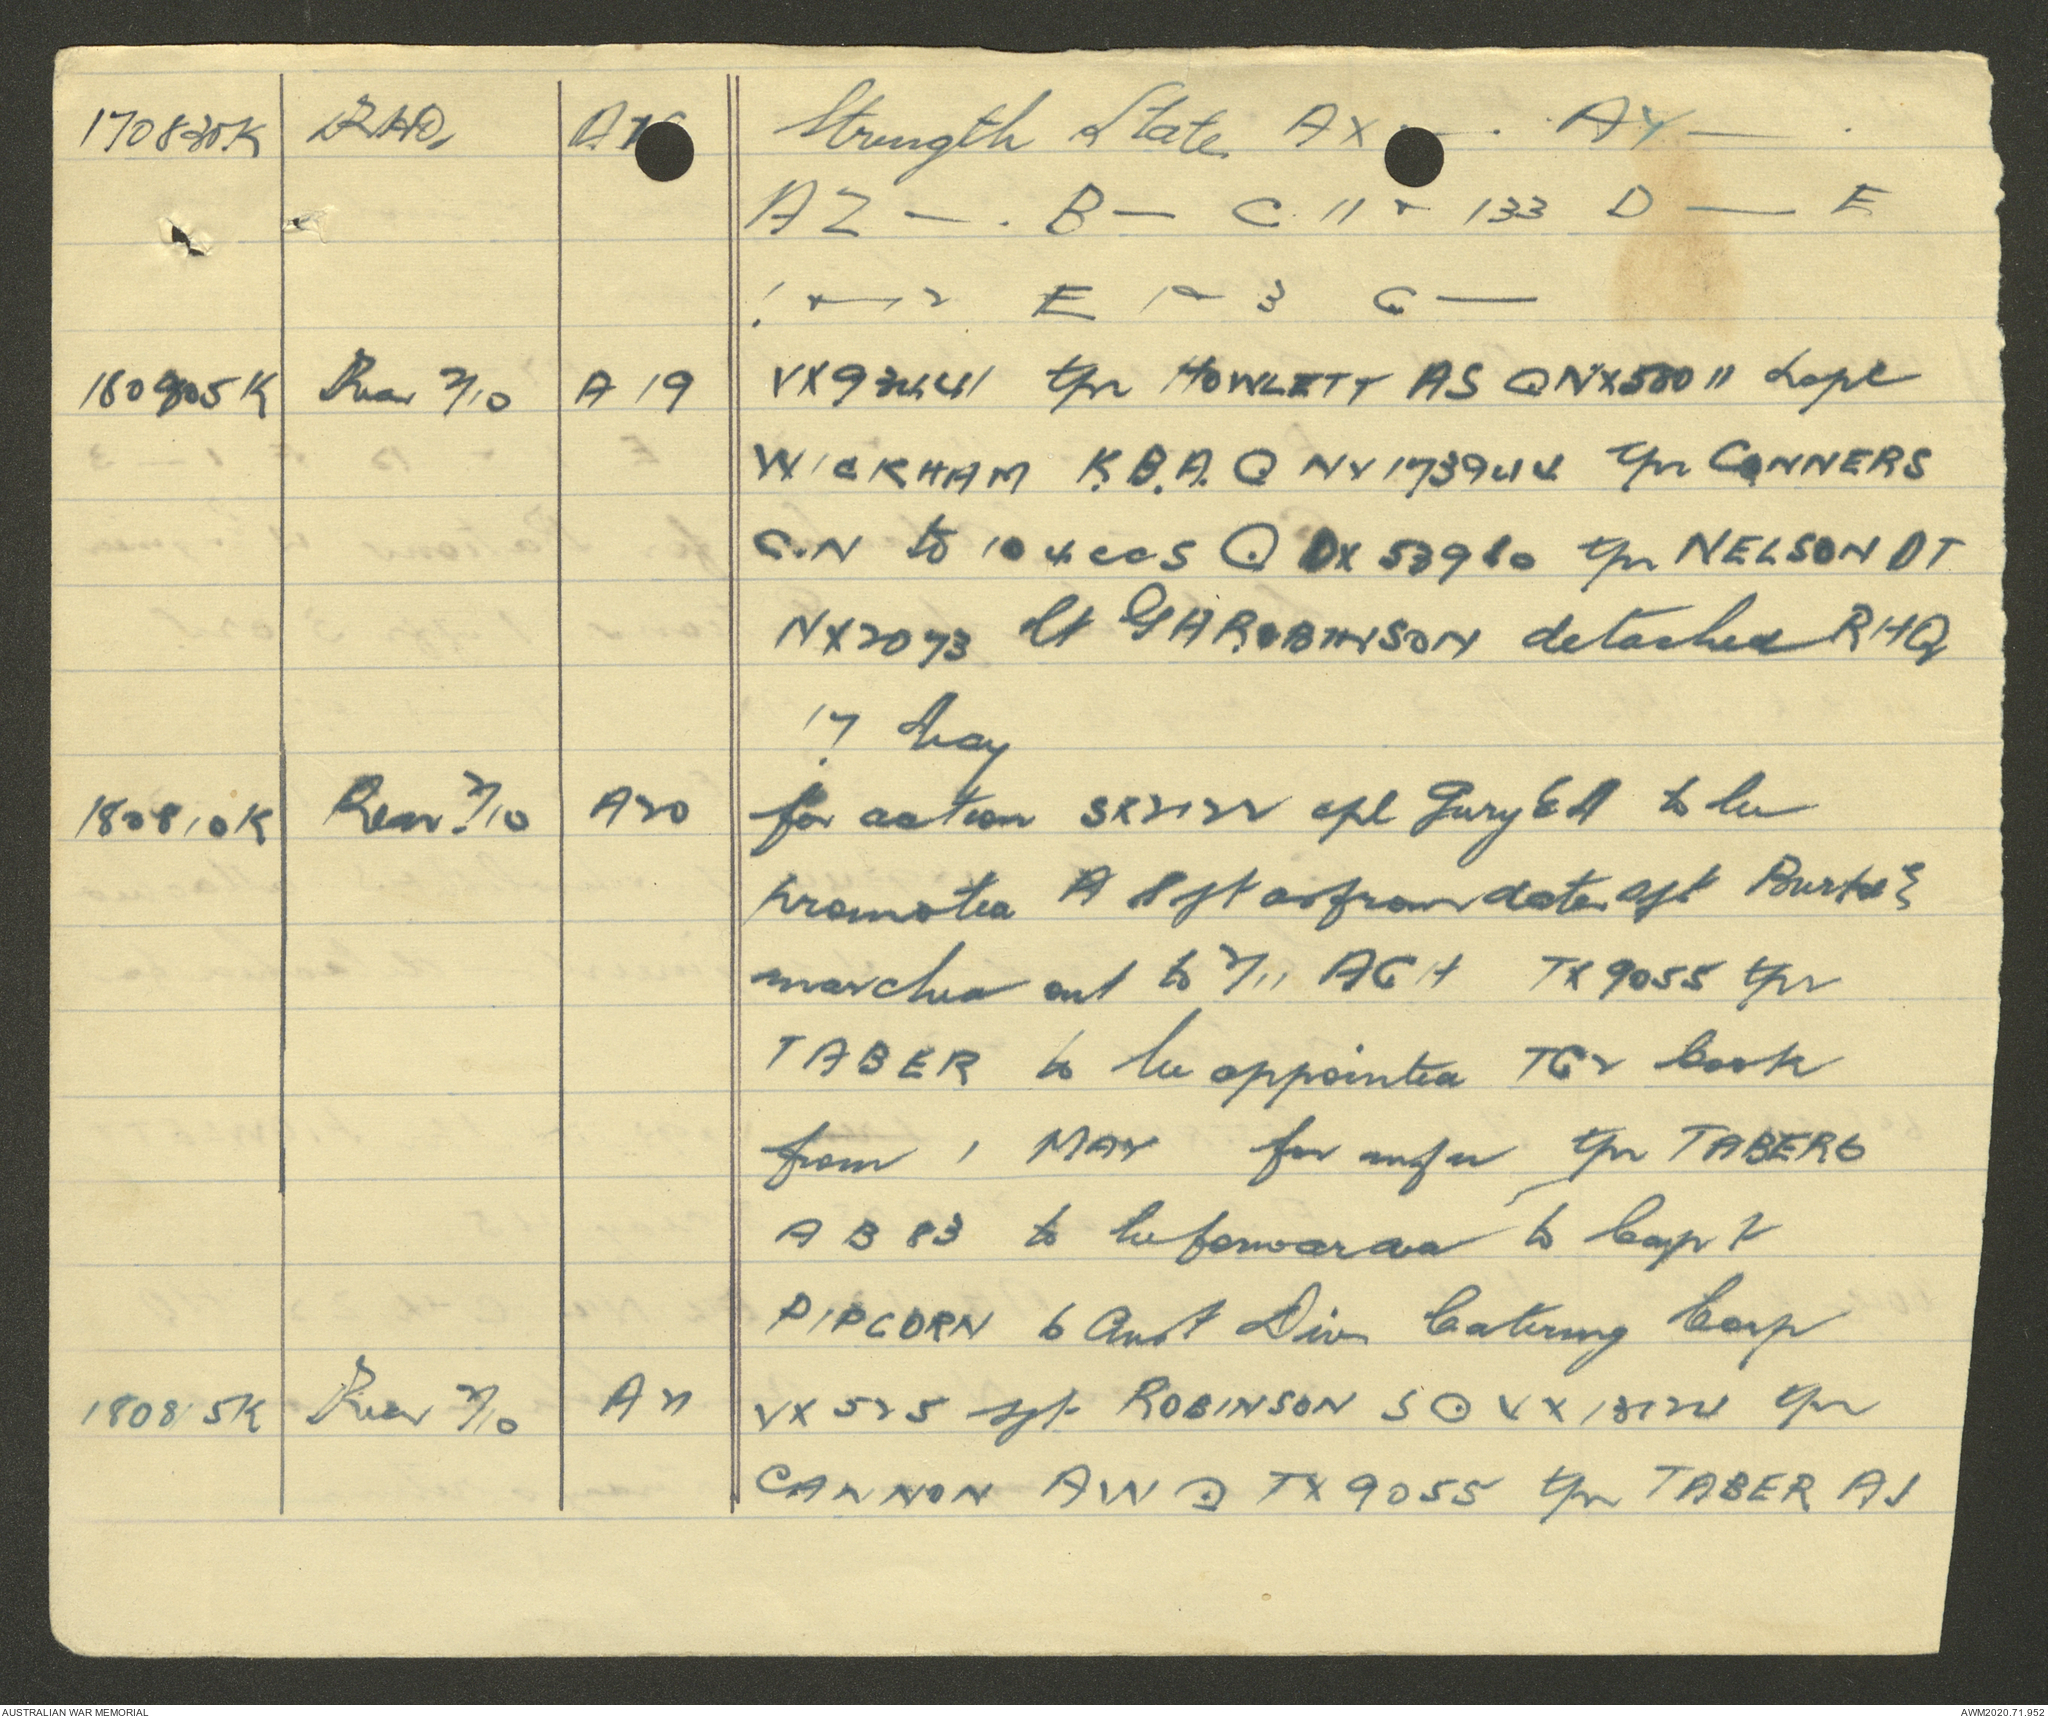 170830K RHQ Strength State AX — . AY — .
AZ — . B — C 11 + 133 D — E
1 + — 12 E 1 + 3 G —
180905K Rear 2/10 A 19 VX93441 tpr HOWLETT AS Q NX58011 Lcpl
WICKHAM K.B.A. Q NX173944 tpr CONNERS
C.N to 104 CCS Q DX 53980 tpr NELSON DT
NX2073 Lt GA ROBINSON detached RHQ
17 May
180810K Rear 2/10 A20 for action SX2122 cpl Gury EA to be
promoted A Sgt as from date sgt
marched out to 2/11 AGH TX9055 tpr
TABER to be appointed TG2 Cook
from 1 MAY for infm tpr TABERS
AB 83 to be forwarded to Capt
PIPCORN 6 Aust Div Catering Corp
180815K Rear 2/10 A21 VX525 sgt ROBINSON S Q VX13124 tpr
CANNON AW Q TX9055 tpr TABER AJ
AUSTRALIAN WAR MEMORIAL AWM2020.71.952